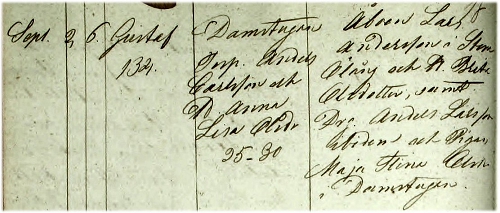 Sept. 3 6 Gustaf
132.
Damstugan
Torp. Anders
Carlsson och
H. Anna
Lisa Olsdr
25-30
Åboen Lars
Andersson i Sten
och H. Brita
Olsdotter, samt
Drg. Anders Larsson
och Pigan
Maja Stina Olsdr
i Damstugan.